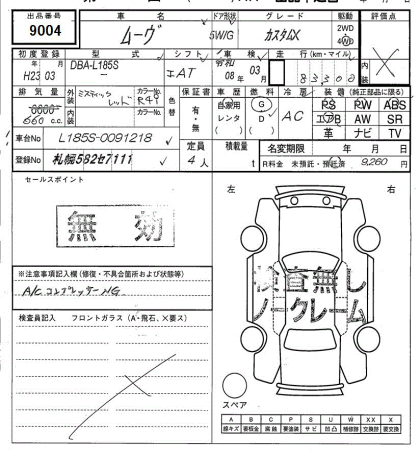 出品番号 車名 ドア形状 グレード 駆動 評価点
9004 ムーヴ 5W/G カスタムX 2WD 4WD
初度登録 型式 シフト 車検 走行 (km・マイル) 内装
年 月
H23 03 DBA-L185S IAT 08年 03月 83300
排気量 外装 ミスティックレッド カラーNo. R41 色替 保証書 車歴 燃料 冷房 装備 (純正部品に限る)
660 c.c. 内装 カラーNo. 有・無 自家用 レンタ ( ) G D ( ) AC PS PW ABS
エアB AW SR
革 ナビ TV
車台No L185S-0091218
定員 積載量 名変期限 年 月 日
登録No 札幌582せ7111 4人 t R料金 未預託・預託済 9,260 円
セールスポイント
左 右
無効
※注意事項記入欄 (修復・不具合箇所および状態等)
A/C コンプレッサーNG
検査無し
ノークレーム
検査員記入 フロントガラス (A・飛石、X要ス)
スペア
A B C P S U W XX X
線キズ 要板金 腐蝕 要塗装 サビ 凹凸 補修跡 交換跡 要交換